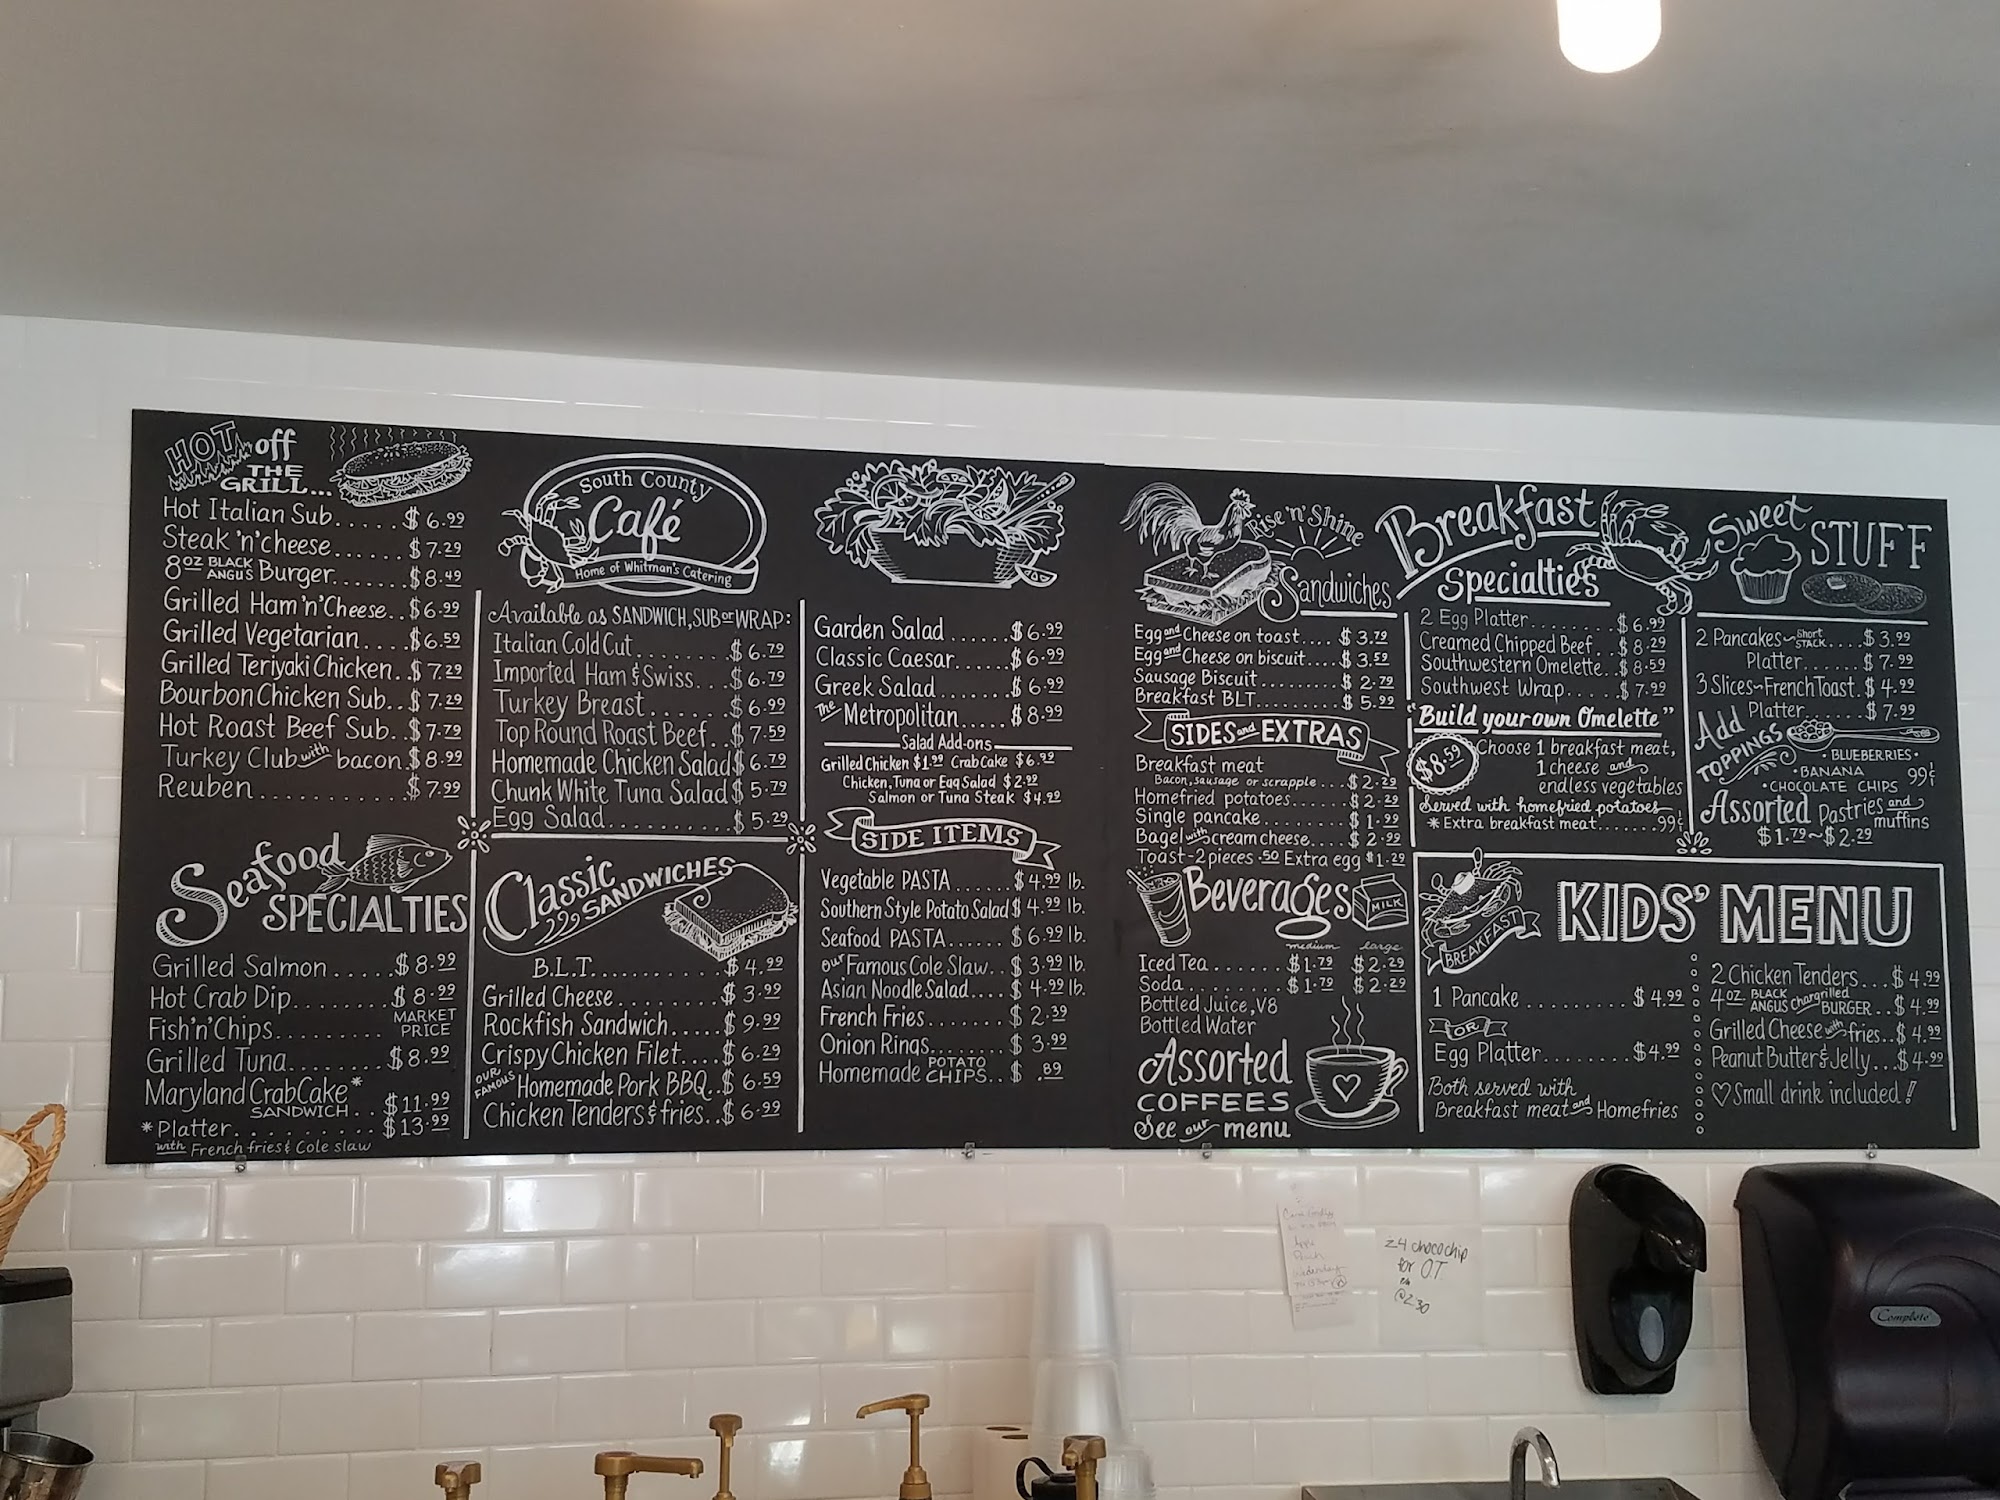 HOT off
THE
GRILL...
Hot Italian Sub..... $6.99
Steak 'n' cheese...... $7.29
8 OZ BLACK ANGUS Burger....... $8.49
Grilled Ham 'n' Cheese.. $6.99
Grilled Vegetarian.... $6.59
Grilled Teriyaki Chicken.. $7.29
Bourbon Chicken Sub.. $7.29
Hot Roast Beef Sub.. $7.79
Turkey Club with bacon. $8.99
Reuben............ $7.99
Seafood
SPECIALTIES
Grilled Salmon..... $8.99
Hot Crab Dip........ $8.99
Fish 'n' Chips..... MARKET PRICE
Grilled Tuna....... $8.99
Maryland Crab Cake*
SANDWICH.. $11.99
*Platter.......... $13.99
with French fries & Cole slaw
South County
Café
Home of Whitman's Catering
Available as SANDWICH, SUB or WRAP:
Italian Cold Cut........ $6.79
Imported Ham & Swiss... $6.79
Turkey Breast....... $6.99
Top Round Roast Beef.. $7.59
Homemade Chicken Salad $6.79
Chunk White Tuna Salad $5.79
Egg Salad.......... $5.29
Classic
SANDWICHES
B.L.T........... $4.99
Grilled Cheese........ $3.99
Rockfish Sandwich..... $9.99
Crispy Chicken Filet.... $6.29
OUR FAMOUS Homemade Pork BBQ.. $6.59
Chicken Tenders & fries.. $6.99
Garden Salad...... $6.99
Classic Caesar...... $6.99
Greek Salad....... $6.99
The Metropolitan..... $8.99
Salad Add-ons
Grilled Chicken $1.99 Crab Cake $6.99
Chicken, Tuna or Egg Salad $2.99
Salmon or Tuna Steak $4.99
SIDE ITEMS
Vegetable PASTA...... $4.99 lb.
Southern Style Potato Salad $4.99 lb.
Seafood PASTA...... $6.99 lb.
our Famous Cole Slaw.. $3.99 lb.
Asian Noodle Salad.... $4.99 lb.
French Fries....... $2.39
Onion Rings........ $3.99
Homemade POTATO CHIPS.. $.89
Rise 'n' Shine
Sandwiches
Egg and Cheese on toast.... $3.79
Egg and Cheese on biscuit.... $3.59
Sausage Biscuit......... $2.79
Breakfast BLT........... $5.99
SIDES and EXTRAS
Breakfast meat
Bacon, sausage or scrapple... $2.29
Homefried potatoes....... $2.29
Single pancake.......... $1.99
Bagel with cream cheese.... $2.99
Toast-2 pieces .50 Extra egg $1.29
Beverages
MILK
medium large
Iced Tea...... $1.79 $2.29
Soda......... $1.79 $2.29
Bottled Juice, V8
Bottled Water
Assorted
COFFEES
See our menu
Breakfast
Specialties
2 Egg Platter........ $6.99
Creamed Chipped Beef.. $8.29
Southwestern Omelette.. $8.59
Southwest Wrap..... $7.99
"Build your own Omelette"
$8.59
Choose 1 breakfast meat,
1 cheese and
endless vegetables
Served with homefried potatoes
*Extra breakfast meat....... 99¢
Sweet
STUFF
2 Pancakes~Short STACK.... $3.99
Platter...... $7.99
3 Slices~French Toast. $4.99
Platter....... $7.99
Add
TOPPINGS
• BLUEBERRIES •
• BANANA 99¢
• CHOCOLATE CHIPS
Assorted Pastries and muffins
$1.79~$2.29
BREAKFAST
KIDS' MENU
1 Pancake.......... $4.99
OR
Egg Platter........ $4.99
Both served with
Breakfast meat and Homefries
2 Chicken Tenders... $4.99
4 OZ. BLACK ANGUS chargrilled BURGER.. $4.99
Grilled Cheese with fries.. $4.99
Peanut Butter & Jelly... $4.99
♡ Small drink included!
24 choco chip
for O.T.
@2:30
Complete